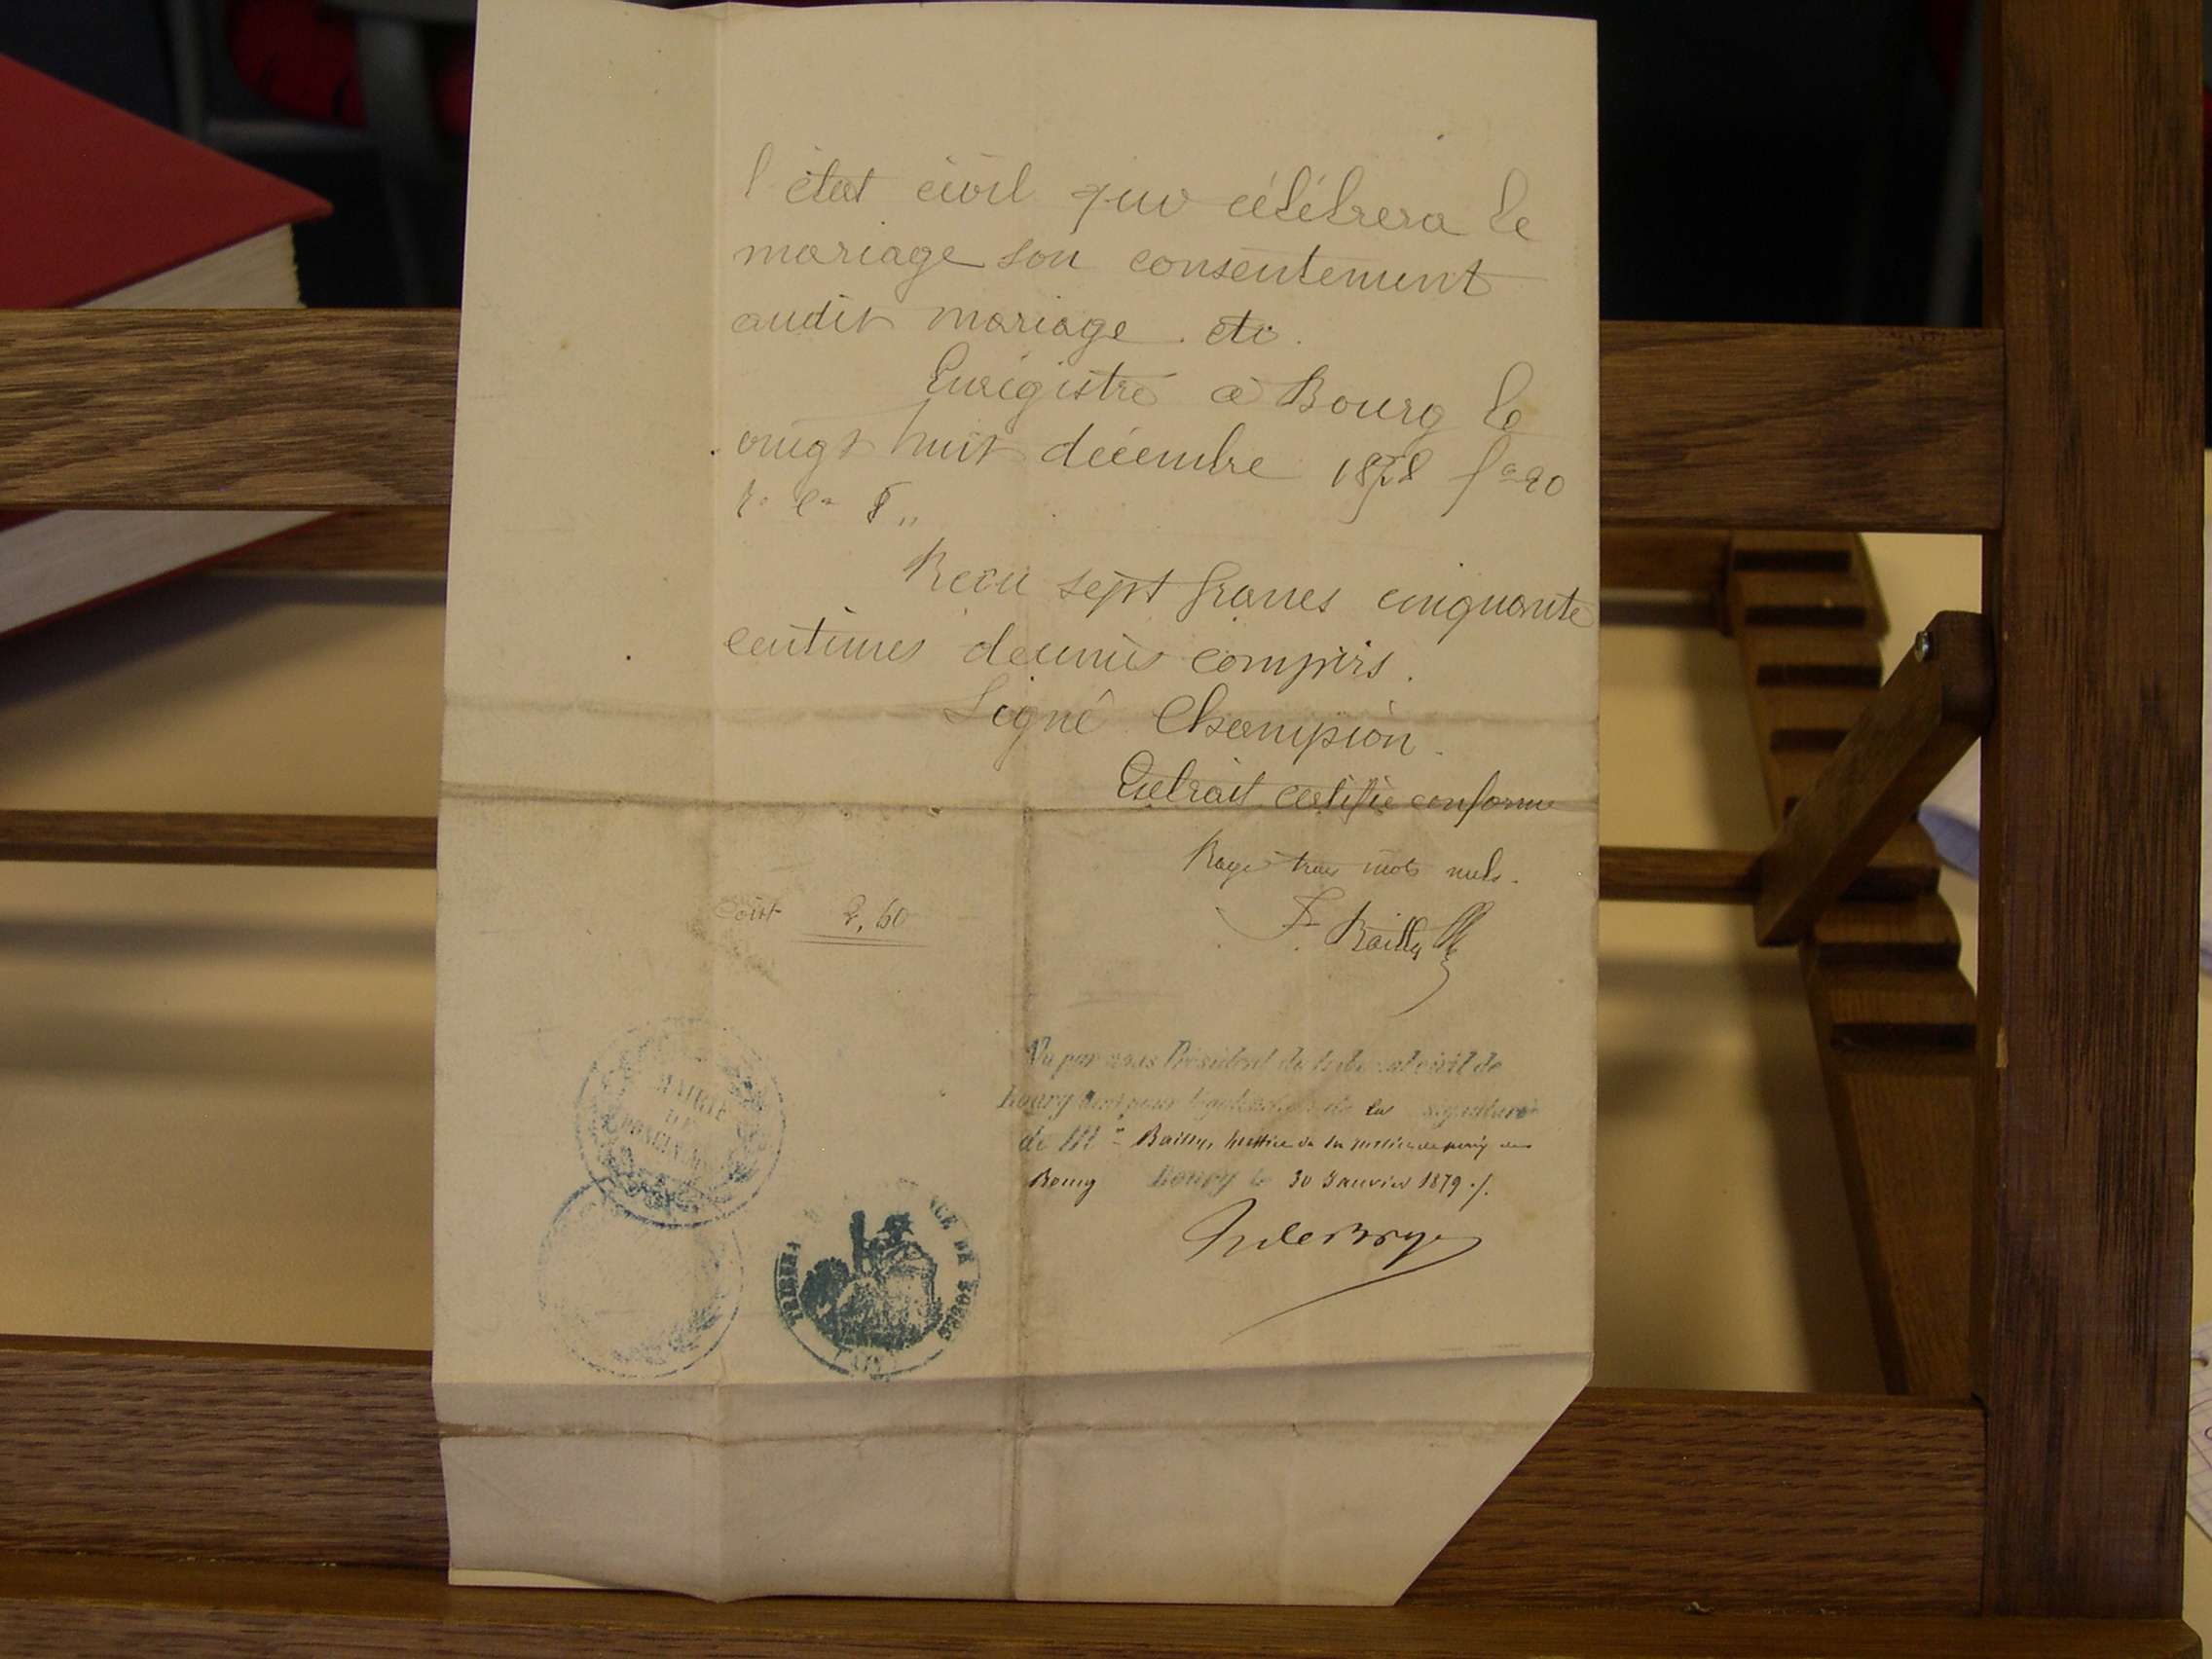 l'état civil qui célébrera le
mariage son consentement
audit mariage. etc.
Enregistré à Bourg le
vingt huit décembre 1878 fo 20
ro co 8 "
Recu sept francs cinquante
centimes décimes compris.
Signé Champion.
Extrait certifié conforme
Rayé trois mots nuls.
Coût 2,60
F. Bailly
Vu par nous Président du tribunal civil de
Bourg pour légalisation de la signature
de Me Bailly, greffier de la justice de paix de
Bourg Bourg le 30 Janvier 1879 ./.
MAIRIE
DE
NCE DE BOURG
(AIN)